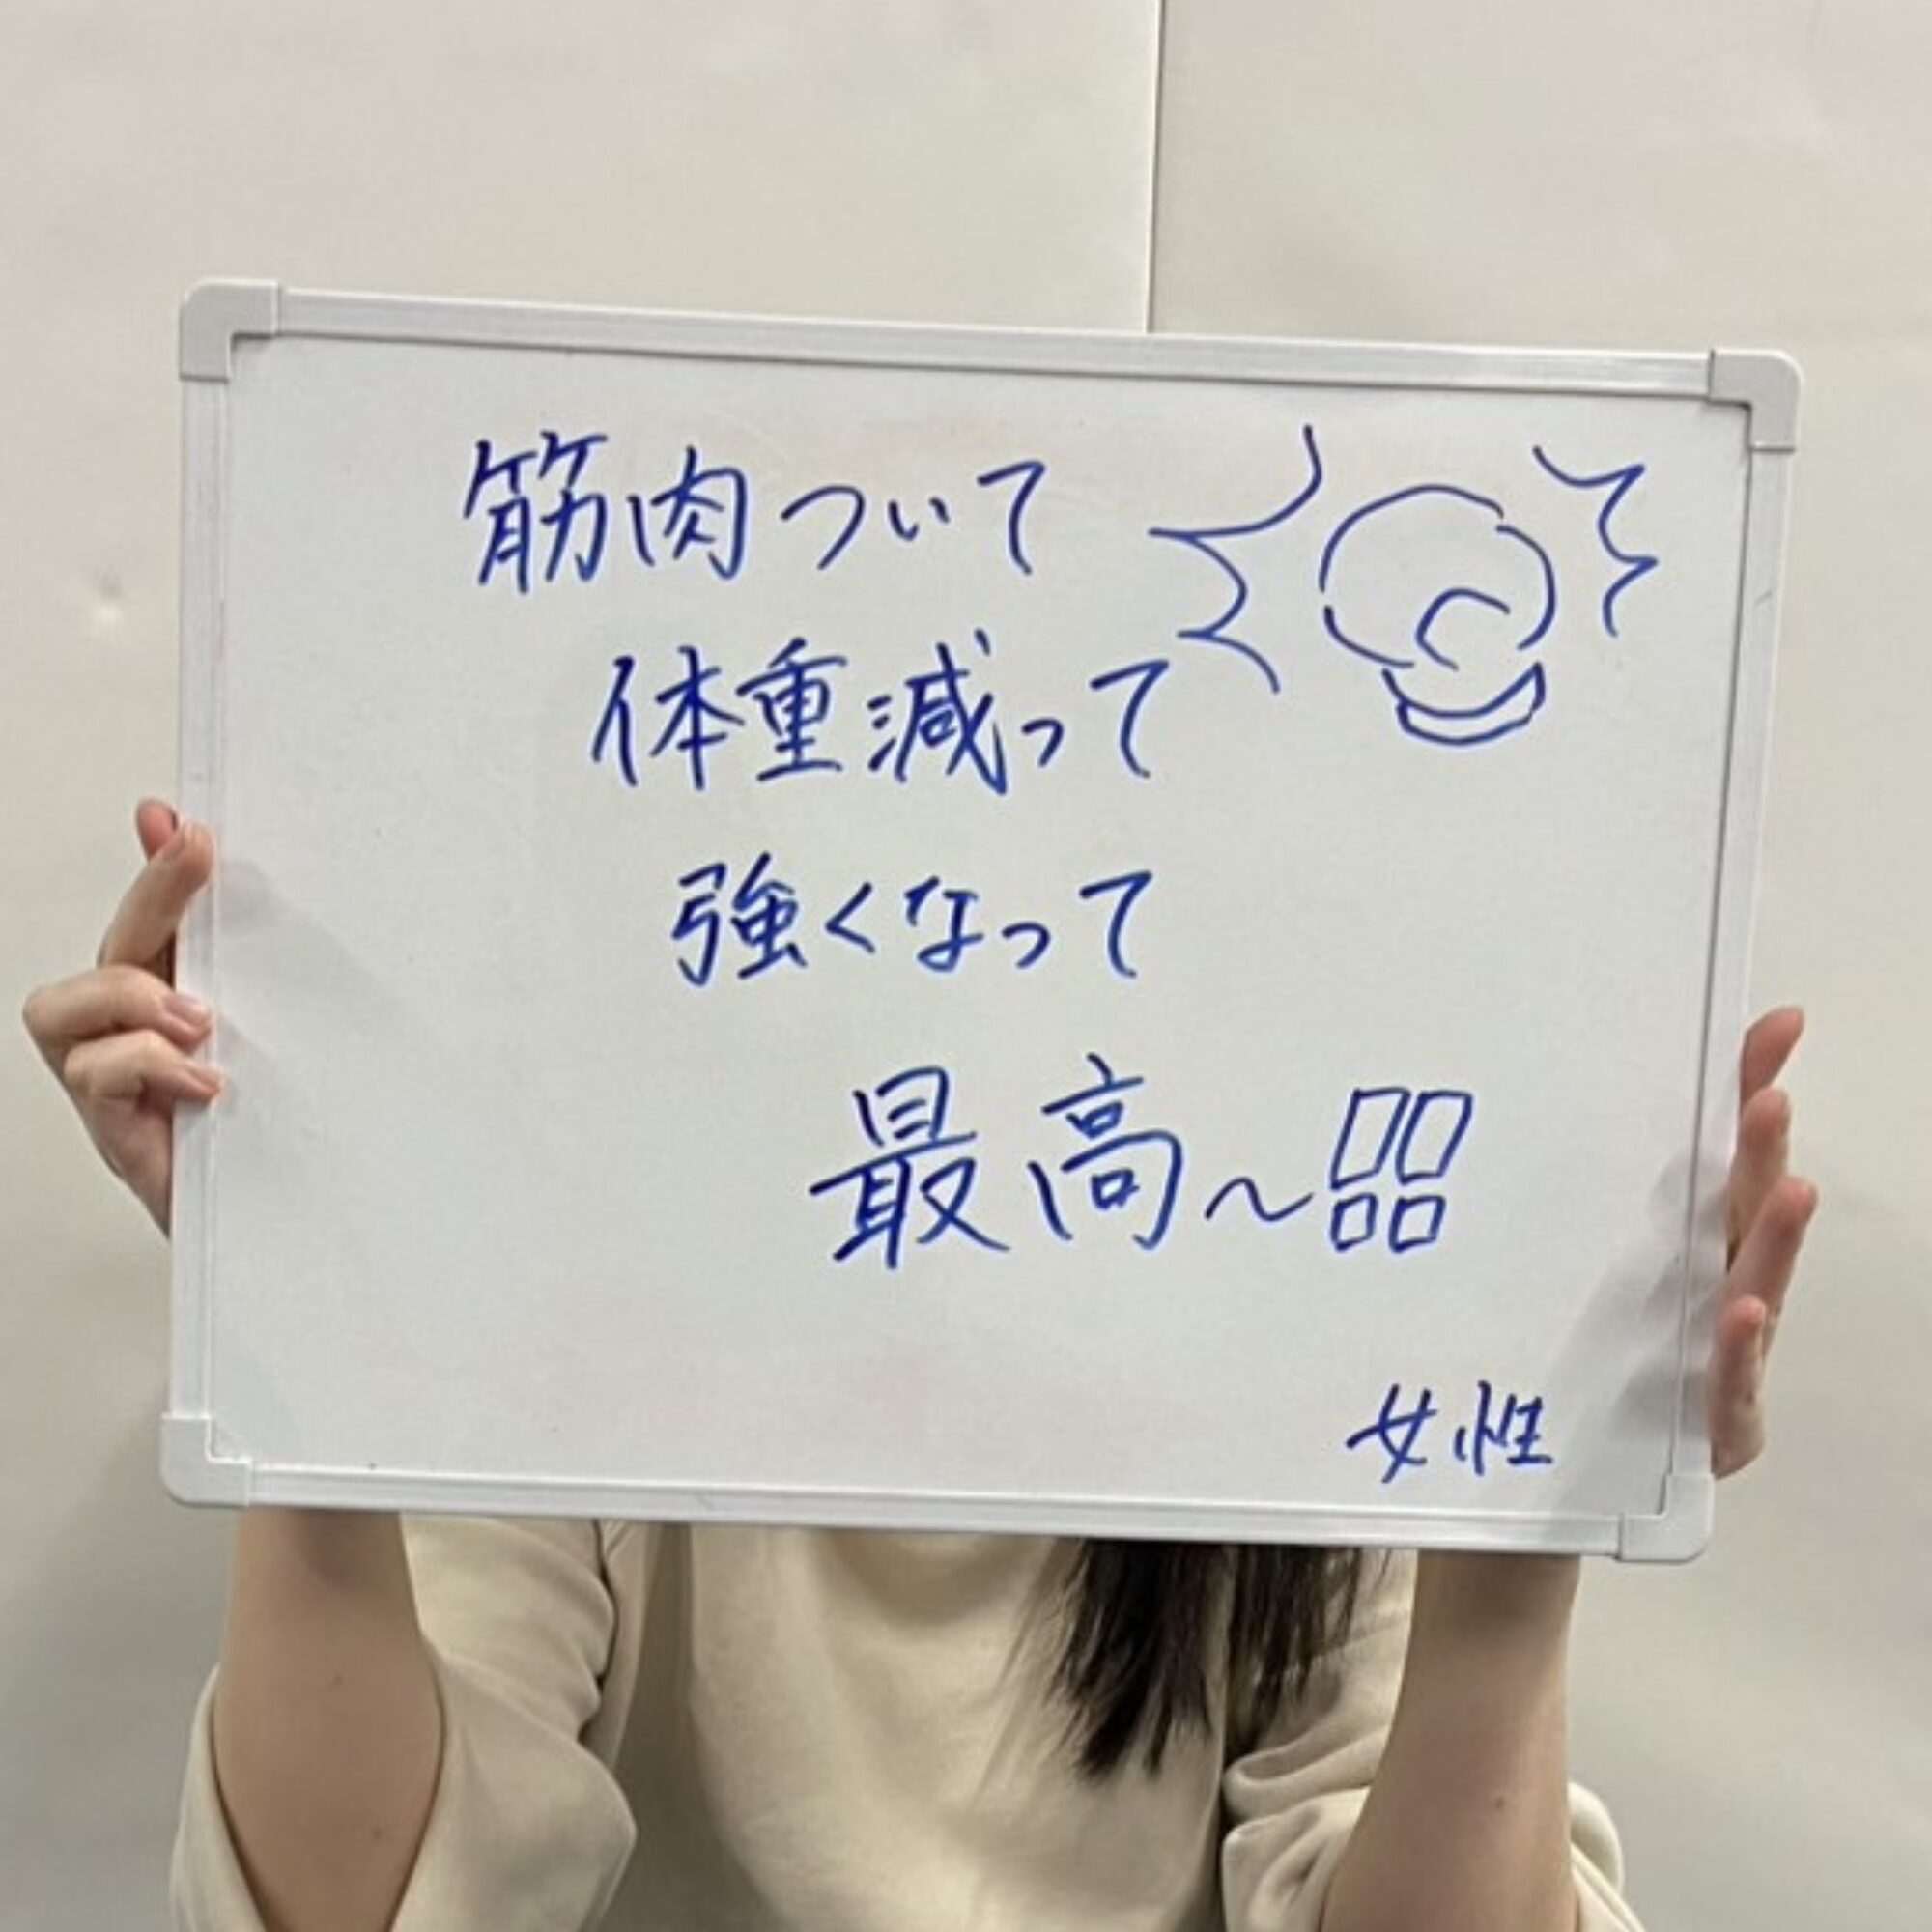 筋肉ついて
体重減って
強くなって
最高〜!!
女性